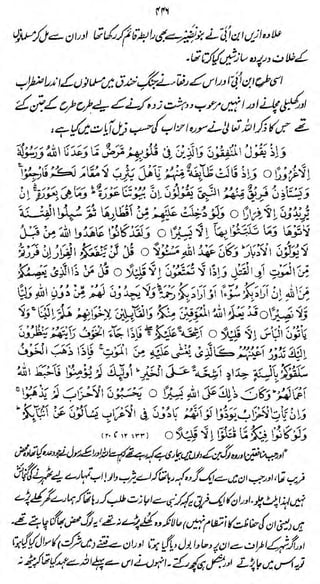 ۴۴۶
علاوہ ازیں ابن اُبیّ نے بنو نضیر سے بھی رابطہ قائم کر رکھا تھا اور ان سے مل کر مسلمانوں
کے خلاف در پردہ سازشیں کیا کرتا تھا۔
اسی طرح ابن اُبیّ اور اس کے رفقا نے جنگ خندق میں مسلمانوں کے اندر اضطراب
اور کھلبلی مچانے اور انہیں مرعوب و دہشت زدہ کرنے کے لیے طرح طرح کے جتن کئے
تھے جس کا ذکر اللہ تعالیٰ نے سورہ احزاب کی حسب ذیل آیات میں کیا ہے:
وَإِذْ يَقُولُ الْمُنٰفِقُونَ وَالَّذِينَ فِي قُلُوبِهِمْ مَرَضٌ مَا وَعَدَنَا اللهُ وَرَسُولُهُ
إِلَّا غُرُورًا ○ وَإِذْ قَالَتْ طَائِفَةٌ مِنْهُمْ يٰأَهْلَ يَثْرِبَ لَا مُقَامَ لَكُمْ فَارْجِعُوا
وَيَسْتَأْذِنُ فَرِيقٌ مِنْهُمُ النَّبِيَّ يَقُولُونَ إِنَّ بُيُوتَنَا عَوْرَةٌ وَمَا هِيَ بِعَوْرَةٍ إِنْ
يُرِيدُونَ إِلَّا فِرَارًا ○ وَلَوْ دُخِلَتْ عَلَيْهِمْ مِنْ أَقْطَارِهَا ثُمَّ سُئِلُوا الْفِتْنَةَ
لَاٰتَوْهَا وَمَا تَلَبَّثُوا بِهَا إِلَّا يَسِيرًا ○ وَلَقَدْ كَانُوا عَاهَدُوا اللهَ مِنْ قَبْلُ
لَا يُوَلُّونَ الْأَدْبَارَ وَكَانَ عَهْدُ اللهِ مَسْئُولًا ○ قُلْ لَنْ يَنْفَعَكُمُ الْفِرَارُ إِنْ فَرَرْتُمْ
مِنَ الْمَوْتِ أَوِ الْقَتْلِ وَإِذًا لَا تُمَتَّعُونَ إِلَّا قَلِيلًا ○ قُلْ مَنْ ذَا الَّذِي يَعْصِمُكُمْ
مِنَ اللهِ إِنْ أَرَادَ بِكُمْ سُوءًا أَوْ أَرَادَ بِكُمْ رَحْمَةً وَلَا يَجِدُونَ لَهُمْ مِنْ دُونِ اللهِ وَلِيًّا
وَلَا نَصِيرًا ○ قَدْ يَعْلَمُ اللهُ الْمُعَوِّقِينَ مِنْكُمْ وَالْقَائِلِينَ لِإِخْوَانِهِمْ هَلُمَّ إِلَيْنَا وَلَا
يَأْتُونَ الْبَأْسَ إِلَّا قَلِيلًا ○ أَشِحَّةً عَلَيْكُمْ فَإِذَا جَاءَ الْخَوْفُ رَأَيْتَهُمْ يَنْظُرُونَ
إِلَيْكَ تَدُورُ أَعْيُنُهُمْ كَالَّذِي يُغْشَى عَلَيْهِ مِنَ الْمَوْتِ فَإِذَا ذَهَبَ الْخَوْفُ
سَلَقُوكُمْ بِأَلْسِنَةٍ حِدَادٍ أَشِحَّةً عَلَى الْخَيْرِ أُولٰئِكَ لَمْ يُؤْمِنُوا فَأَحْبَطَ اللهُ
أَعْمَالَهُمْ وَكَانَ ذٰلِكَ عَلَى اللهِ يَسِيرًا ○ يَحْسَبُونَ الْأَحْزَابَ لَمْ يَذْهَبُوا
وَإِنْ يَأْتِ الْأَحْزَابُ يَوَدُّوا لَوْ أَنَّهُمْ بَادُونَ فِي الْأَعْرَابِ يَسْأَلُونَ عَنْ أَنْبَائِكُمْ
وَلَوْ كَانُوا فِيكُمْ مَا قَاتَلُوا إِلَّا قَلِيلًا ○ (۳۳: ۱۲ تا ۲۰)
"اور جب منافقین اور وہ لوگ جن کے دلوں میں بیماری ہے کہتے تھے کہ اللہ اور اسکے رسول نے جو وعدہ کیا تھا وہ محض
فریب تھا، اور جب ان میں سے ایک گروہ کہہ رہا تھا کہ اے یثرب والو! اب تمہارے لیے ٹھہرنے کی گنجائش
نہیں لہذا پلٹ چلو، اور ان کا ایک فریق یہ کہہ کر نبی سے اجازت طلب کر رہا تھا کہ ہمارے گھر کھلے پڑے
ہیں (یعنی ان کی حفاظت کا انتظام نہیں) حالانکہ وہ کھلے پڑے نہ تھے یہ لوگ محض بھاگنا چاہتے تھے۔
اور اگر شہر کے اطراف سے ان پر دھاوا بول دیا گیا ہوتا اور ان سے فتنے (میں شرکت) کا سوال کیا گیا ہوتا
تو یہ اس میں جا پڑتے اور مشکل ہی کچھ رکتے۔ انہوں نے اس سے پہلے اللہ سے عہد کیا تھا کہ پیٹھ نہ